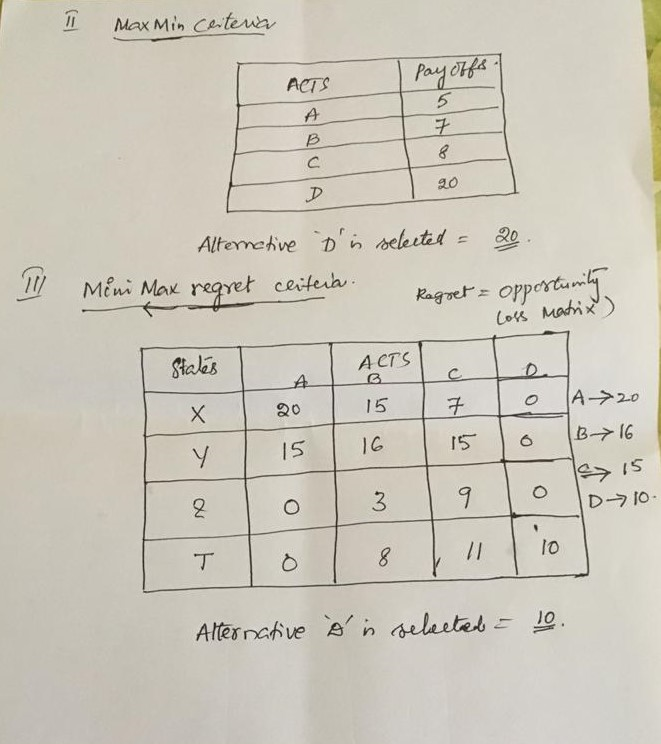 II MaxMin Criteria
ACTS Payoffs.
A 5
B 7
C 8
D 20
Alternative 'D' is selected = 20.
III Mini Max regret criteria.
Regret = opportunity
Loss Matrix)
States ACTS
A B C D
X 20 15 7 0 A→20
Y 15 16 15 0 B→16
C→15
Z 0 3 9 0 D→10.
T 0 8 11 10
Alternative 'D' is selected = 10.